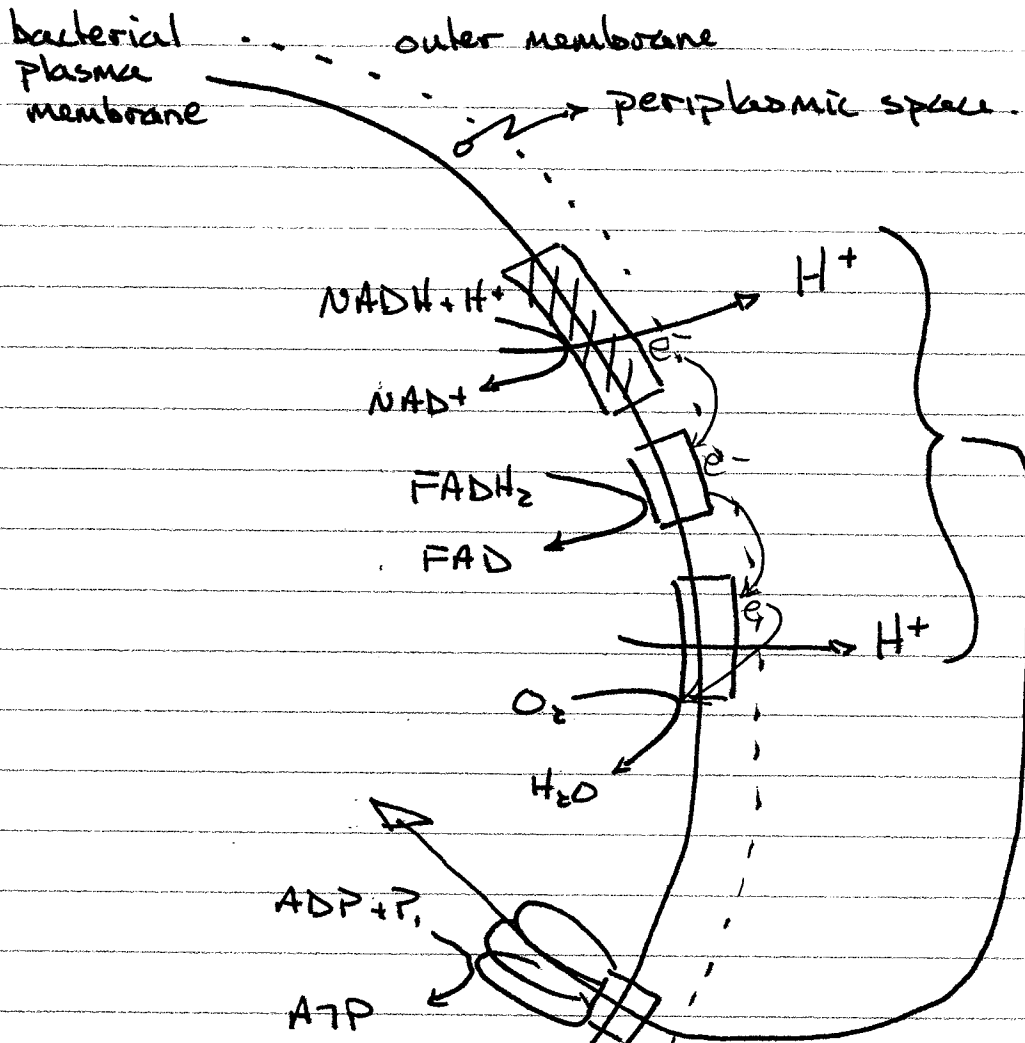 bacterial
plasma
membrane
outer membrane
periplasmic space.
H⁺
NADH + H⁺
e⁻
NAD⁺
e⁻
FADH₂
FAD
e⁻
H⁺
O₂
H₂O
ADP + Pᵢ
ATP